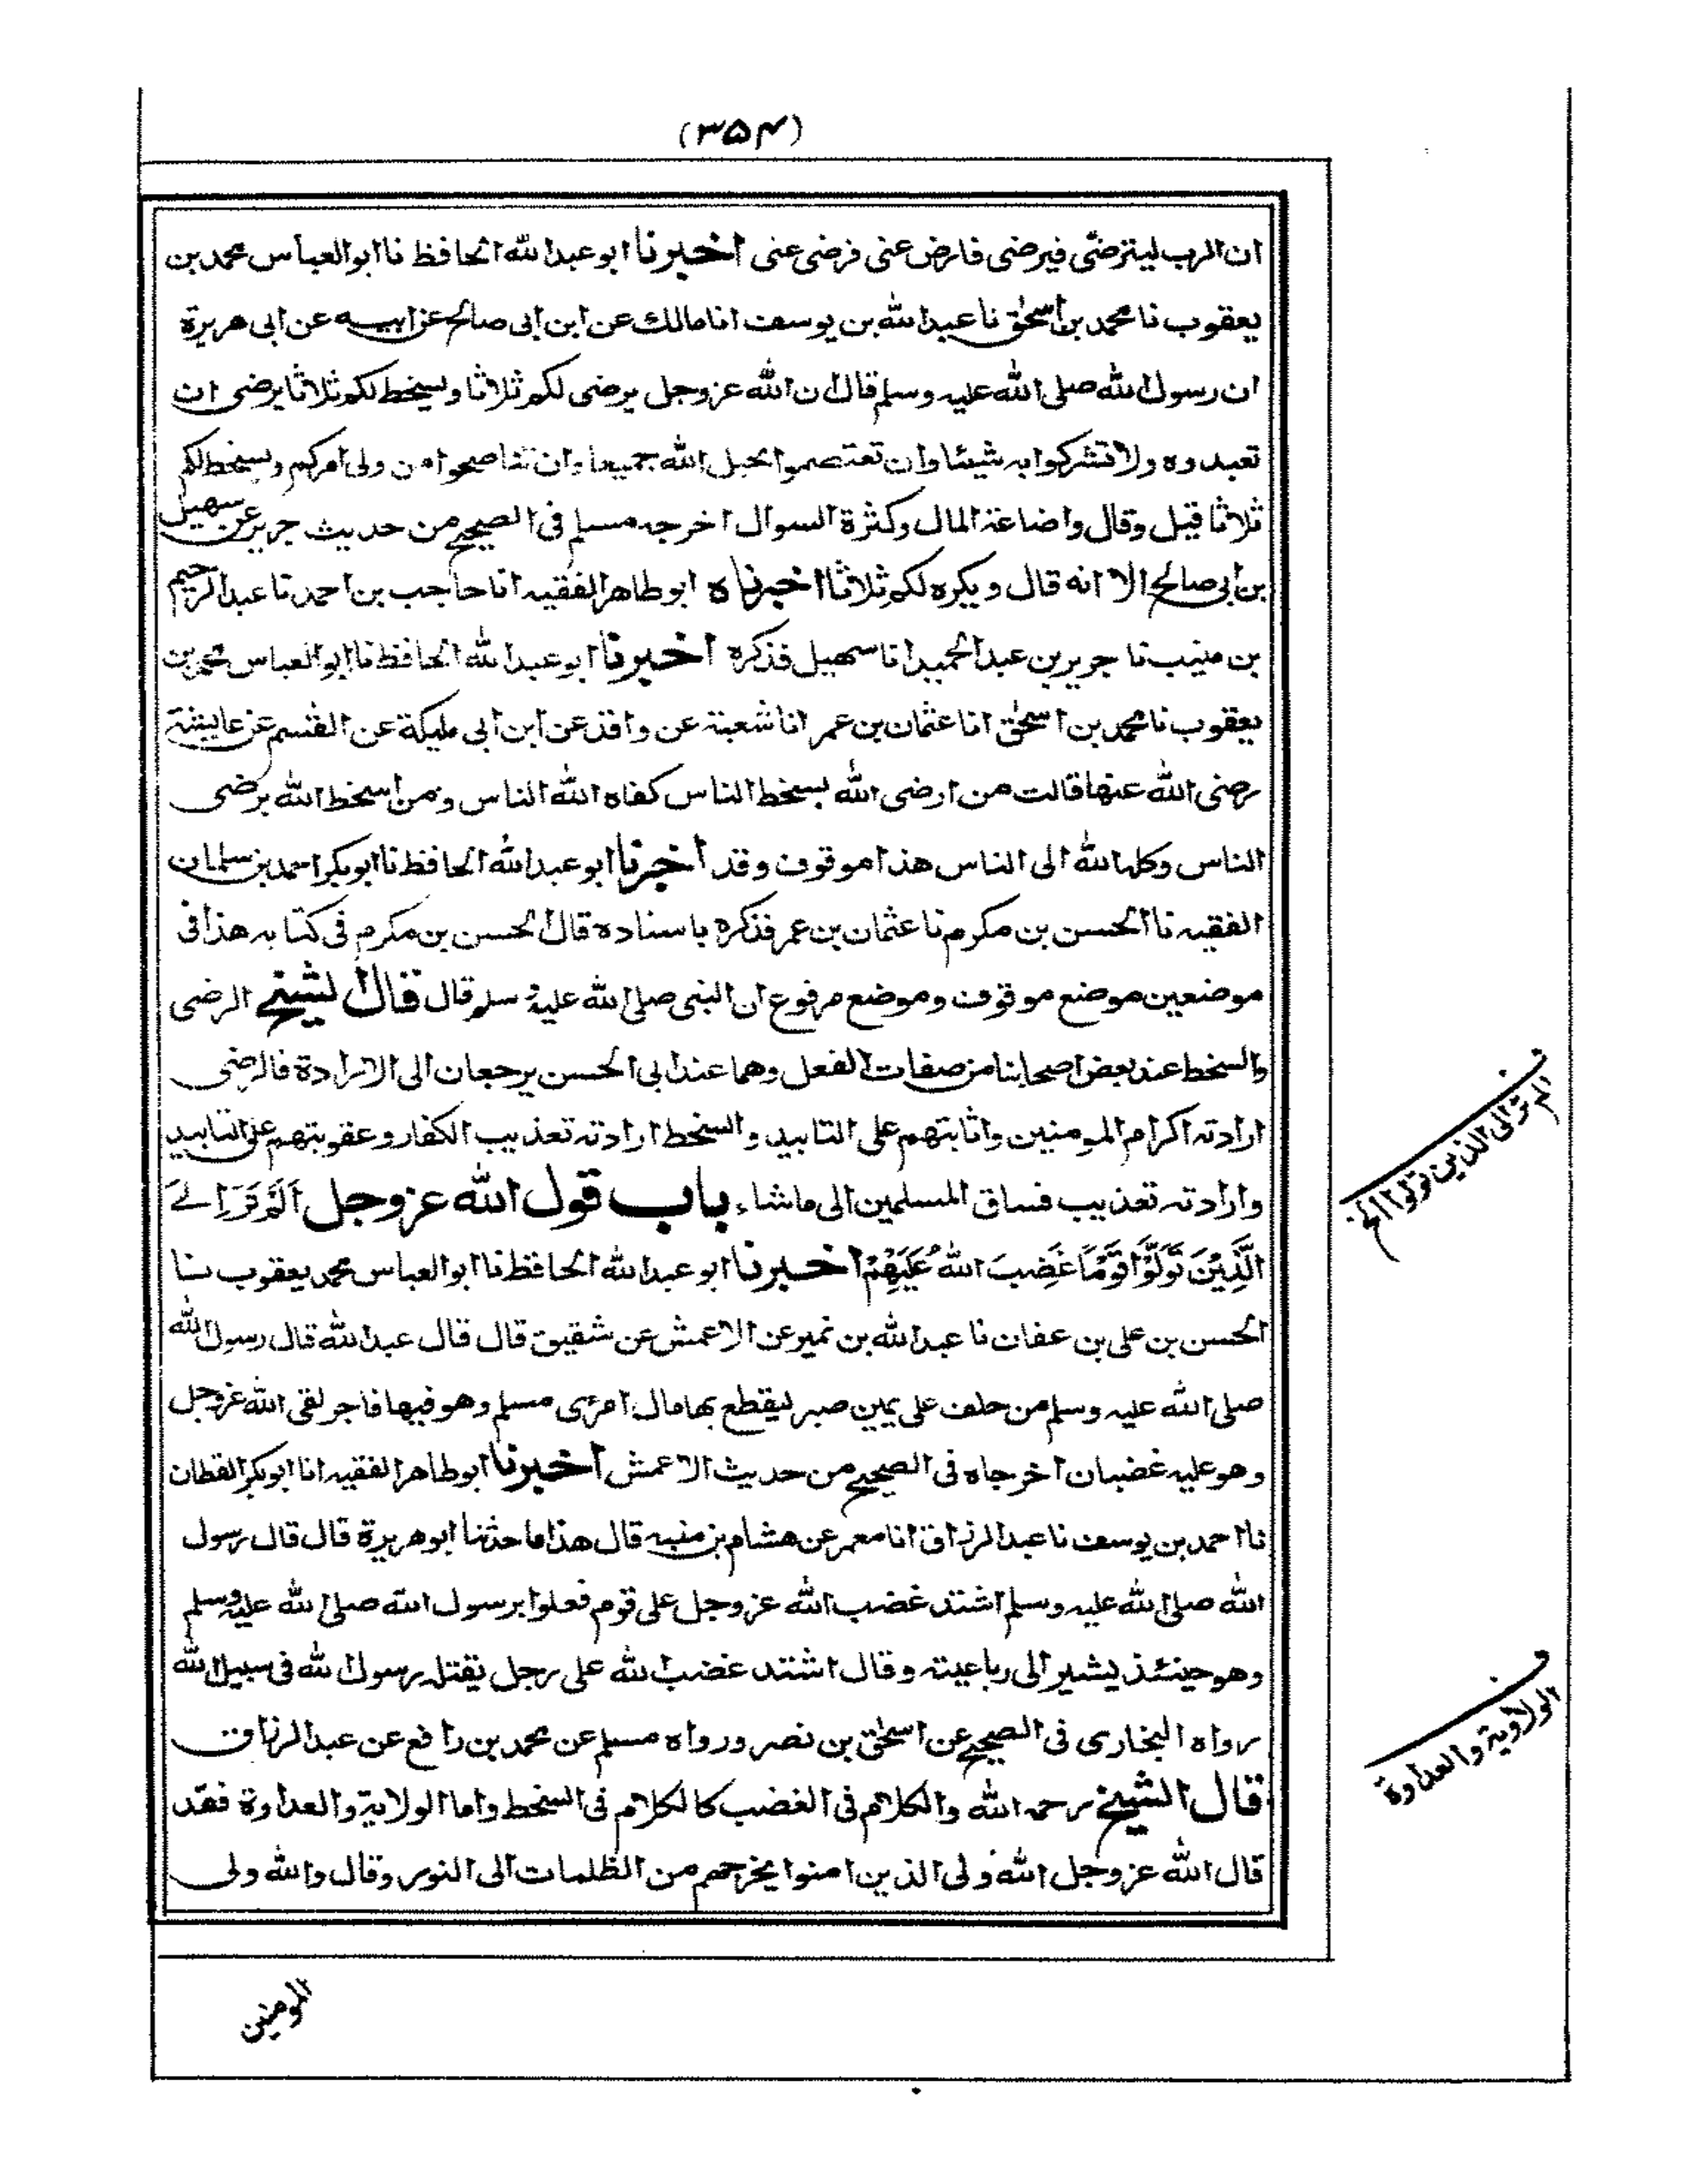 (۳۵۴)
ان الرب ليترضى فيرضى فارض عنى فرضى عنى اخبرنا ابو عبد الله الحافظ نا ابو العباس محمد بن
يعقوب نا محمد بن اسحٰق نا عبد الله بن يوسف انا مالك عن ابن ابى صالح عن ابيه عن ابى هريرة
ان رسول الله صلى الله عليه وسلم قال ان الله عز وجل يرضى لكم ثلاثا ويسخط لكم ثلاثا يرضى ان
تعبدوه ولا تشركوا به شيئا وان تعتصموا بحبل الله جميعا وان تناصحوا من ولى امركم ويسخط لكم
ثلاثا قيل وقال واضاعة المال وكثرة السوال اخرجه مسلم فى الصحيح من حديث جرير عن سهيل
بن ابى صالح الا انه قال ويكره لكم ثلاثا اخبرناه ابو طاهر الفقيه انا حاجب بن احمد نا عبد الرحيم
بن منيب نا جرير بن عبد الحميد انا سهيل فذكره اخبرنا ابو عبد الله الحافظ نا ابو العباس محمد بن
يعقوب نا محمد بن اسحٰق انا عثمان بن عمر انا شعبة عن واقد عن ابن ابى مليكة عن القٰسم عن عايشة
رضى الله عنها قالت من ارضى الله بسخط الناس كفاه الله الناس ومن اسخط الله برضى
الناس وكله الله الى الناس هذا موقوف وقد اخبرنا ابو عبد الله الحافظ نا ابو بكر احمد بن سلمان
الفقيه نا الحسن بن مكرم نا عثمان بن عمر فذكره باسناده قال الحسن بن مكرم فى كتابه هذا فى
موضعين موضع موقوف وموضع مرفوع ان النبى صلى الله عليه وسلم قال قال الشيخ الرضى
والسخط عند بعض اصحابنا من صفات الفعل وهما عند ابى الحسن يرجعان الى الارادة فالرضى
ارادته اكرام المومنين واثابتهم على التابيد والسخط ارادته تعذيب الكفار وعقوبتهم على التابيد
وارادته تعذيب فساق المسلمين الى ماشاء، باب قول الله عز وجل اَلَمْ تَرَ اِلَى
الَّذِيْنَ تَوَلَّوْا قَوْمًا غَضِبَ اللهُ عَلَيْهِمْ اخبرنا ابو عبد الله الحافظ نا ابو العباس محمد يعقوب نا
الحسن بن على بن عفان نا عبد الله بن نمير عن الاعمش عن شقيق قال قال عبد الله قال رسول الله
صلى الله عليه وسلم من حلف على يمين صبر ليقطع بها مال امرئ مسلم وهو فيها فاجر لقى الله عز وجل
وهو عليه غضبان اخرجاه فى الصحيح من حديث الاعمش اخبرنا ابو طاهر الفقيه انا ابو بكر القطان
نا احمد بن يوسف نا عبد الرزاق انا معمر عن هشام بن منبه قال هذا ما حدثنا ابو هريرة قال قال رسول
الله صلى الله عليه وسلم اشتد غضب الله عز وجل على قوم فعلوا برسول الله صلى الله عليه وسلم
وهو حينئذ يشير الى رباعيته وقال اشتد غضب الله على رجل يقتله رسول الله فى سبيل الله
رواه البخارى فى الصحيح عن اسحٰق بن نصر ورواه مسلم عن محمد بن رافع عن عبد الرزاق
قال الشيخ رحمه الله والكلام فى الغضب كالكلام فى السخط واما الولاية والعداوة فقد
قال الله عز وجل الله ولى الذين امنوا يخرجهم من الظلمات الى النور وقال والله ولى
ف
الم تر الى الذين تولوا الخ
ف
الولاية والعداوة
المومنين